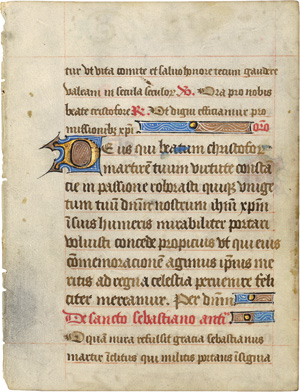 tur ut vita comite et salvo honore tecum gaudere
valeam in secula seculor. V. Ora pro nobis
beate cristofore R. Ut digni efficiamur pro
missionibꝫ xp̄i oro
Deus qui beatum christofor
martirem tuum virtute consta
cie in passione roborasti quiqꝫ vnige
tum tuū dn̄m nostrum ihm̄ xp̄m
ī suis humeris mirabiliter portari
voluisti concede propicius ut qui eius
cōmemoracionem agimus ip̄ius me
ritis ad regna celestia peruenire feli
citer mereamur. Per dn̄m
De sancto sebastiano anti
O quā mira refulsit gracia sebastianus
martir īclitus qui militis portans īsignia